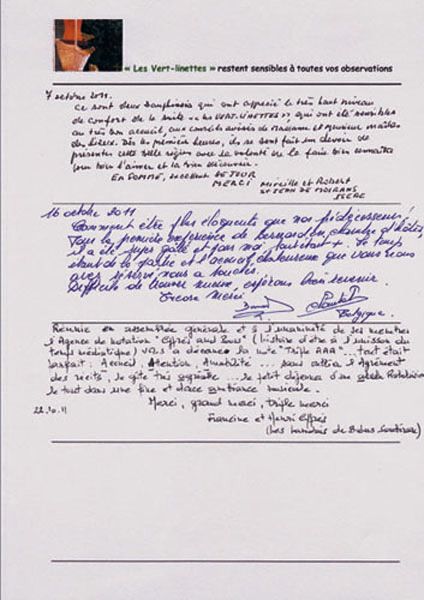 « Les Vert-linettes » restent sensibles à toutes vos observations
7 octobre 2011.
Ce sont deux Dauphinois qui ont apprécié le très haut niveau
de confort de la suite "LES VERT-LINETTES", qui ont été sensibles
au très bon accueil, aux conseils avisés de Madame et Monsieur maîtres
des lieux. Dès les premières heures, ils se sont fait un devoir de
présenter cette belle région avec la volonté de la faire bien connaître
pour bien l'aimer et la bien découvrir.
EN SOMME, EXCELLENT SEJOUR
MERCI Mireille et Robert
ST JEAN DE MOIRANS
ISERE
16 octobre 2011
Comment être plus éloquents que nos prédécesseurs!
Tous la première expérience de Bernard en chambre d'hôtes,
il a été super gâté et pour moi, tout était +. Le temps
était de la partie et l'accueil chaleureux que vous nous
avez réservé nous a touchés.
Difficile de trouver mieux, espérons bien revenir.
Encore Merci.
Belgique.
Réunie en assemblée générale et à l'unanimité de ses membres
l'Agence de notation "Effrés and Sous" (histoire d'être à l'unisson du
temps médiatique) vous a décerné la note "Triple AAA"... tout était
parfait : Accueil, Attention, Amabilité ... sans oublier l'Agrément
des récits, le gîte très agréable ... le petit déjeuner d'un
le tout dans une fine et douce ambiance musicale.
Merci, grand merci, triple merci
22.10.11
Francine et Henri Effrés
(Les Landais de